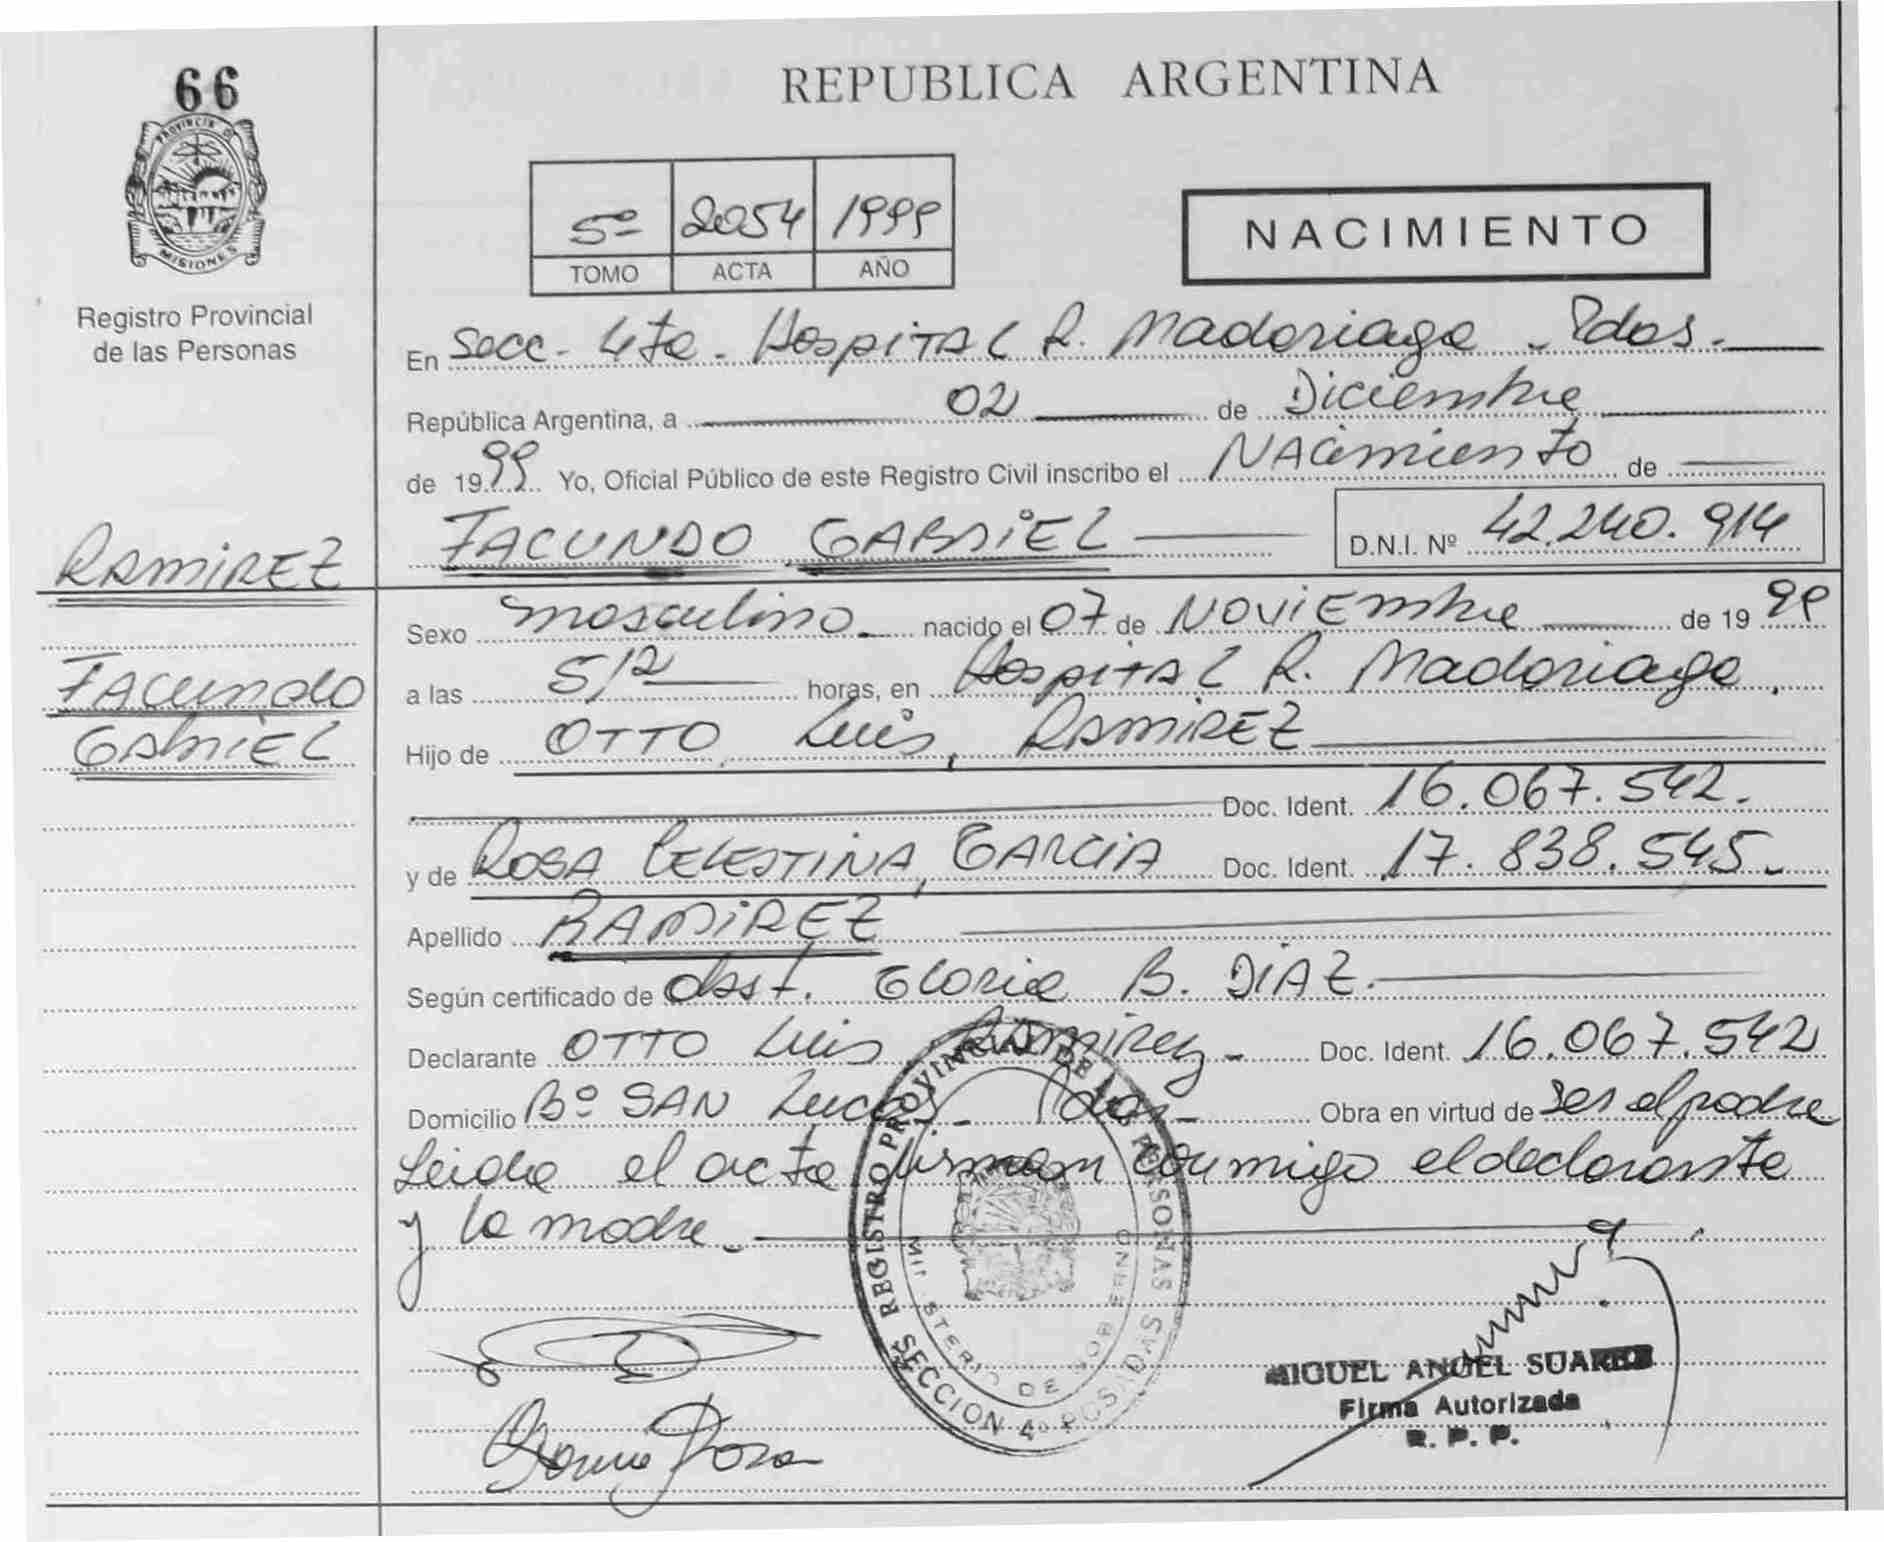 66
PROVINCIA D
MISIONES
Registro Provincial
de las Personas
RAMIREZ
FACUNDO
GABRIEL
REPUBLICA ARGENTINA
5º 2054 1999
TOMO ACTA AÑO
NACIMIENTO
En Secc. 4ta. Hospital R. Madariaga - Pdas.
República Argentina, a 02 de Diciembre
de 1999 Yo, Oficial Público de este Registro Civil inscribo el Nacimiento de
FACUNDO GABRIEL D.N.I. Nº 42.240.914
Sexo masculino nacido el 07 de Noviembre de 1999
a las 5/2 horas, en Hospital R. Madariaga.
Hijo de OTTO Luis, RAMIREZ
Doc. Ident. 16.067.542.
y de ROSA CELESTINA, GARCIA Doc. Ident. 17.838.545.
Apellido RAMIREZ
Según certificado de obst. Gloria B. DIAZ.
Declarante OTTO Luis Ramirez - Doc. Ident. 16.067.542
Domicilio Bº SAN Lucas - Pdas - Obra en virtud de ser el padre
Leida el acta firman conmigo el declarante
y la madre.
REGISTRO PROVINCIAL DE LAS PERSONAS
MINISTERIO DE GOBIERNO
SECCION 4º POSADAS
MIGUEL ANGEL SUAREZ
Firma Autorizada
R. P. P.
Rosa